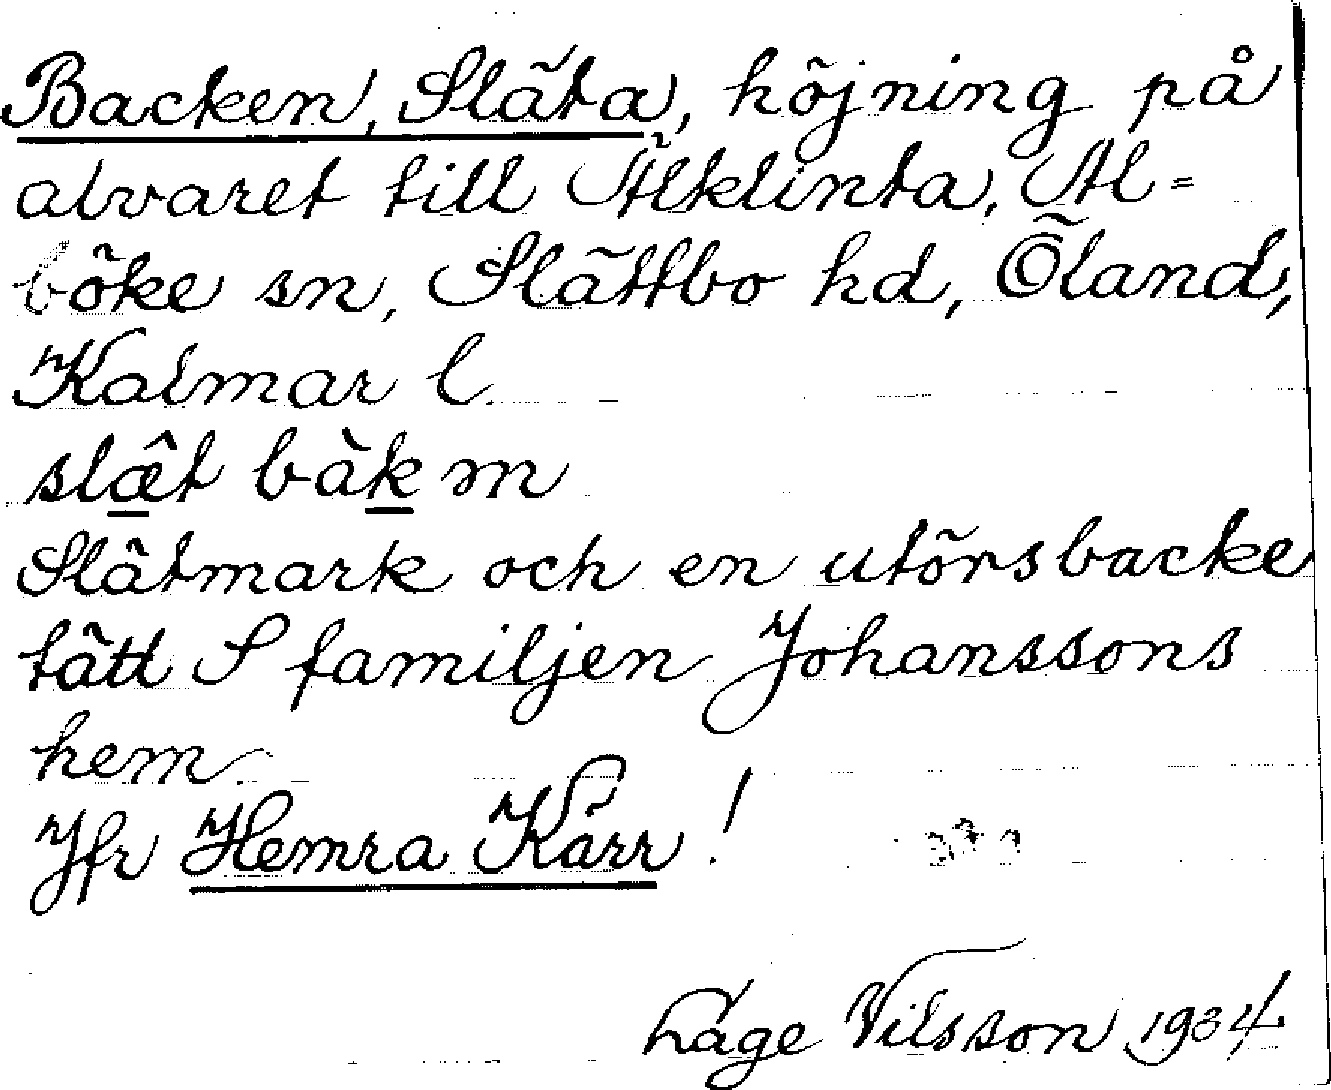 Backen, Släta, höjning på
alvaret till Älklinta, Al=
böke sn, Slättbo hd, Öland,
Kalmar l
slæ̂t bàk m
Slätmark och en utörsbacke
tätt S familjen Johanssons
hem
Jfr Hemra Kärr!
Låge Nilsson 1934